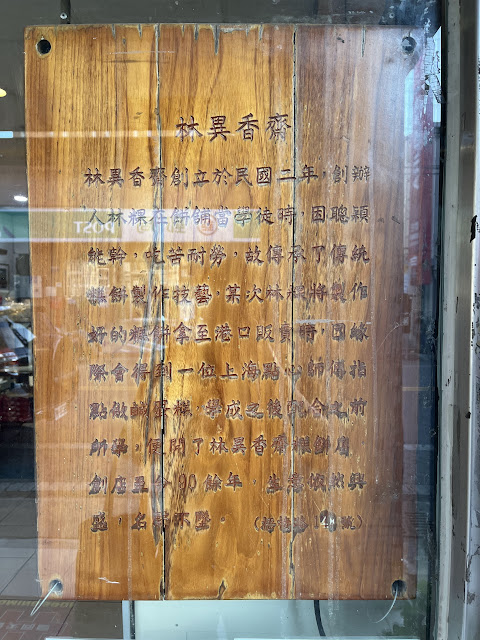 林異香齋
林異香齋創立於民國二年，創辦
人林粿在餅舖當學徒時，因聰穎
能幹，吃苦耐勞，故傳承了傳統
糕餅製作技藝，某次林粿將製作
好的糕餅拿至港口販賣時，因緣
際會得到一位上海點心師傅指
點做鹹蛋糕，學成之後配合之前
所學，便開了林異香齋糕餅店
創店至今90餘年，生意依然興
盛，名聲不墜。
POST